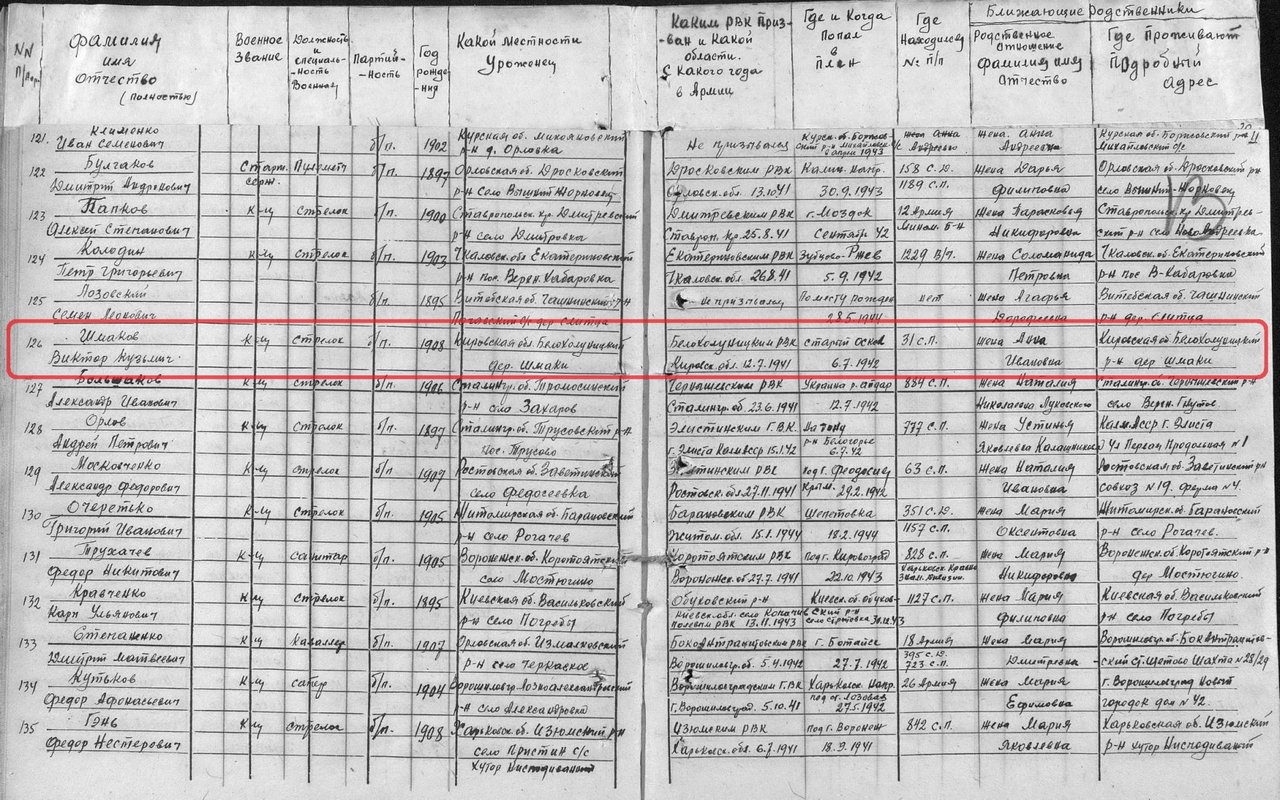 NN п/пор.
Фамилия имя Отчество (полностью)
Военное Звание
Должность и специальность Военная
Партийность
Год рождения
Какой местности Уроженец
Каким РВК Призван и Какой области. С какого года в Армии
Где и Когда Попал в плен
Где Находился № п/п
Ближающие родственники
Родственное отношение фамилия имя Отчество
Где Проживают Подробный адрес
121. Клименко б/п. 1902 Курская об. Микояновский Не призывался Курск. об. Борисов- Жена Анна Курская об. Борисовский
Иван Семенович р-н д. Орловка 1943 Андреевна Михайловский с/с
122 Булгаков Старш. б/п. 1897 Орловская об. Дросковский Дросковским РВК Калин. напр. 158 с.д. Жена Дарья Орловская об. Дросковский р-н
Дмитрий Андреевич серж. р-н село Орловск. об. 13.10.41 30.9.1943 1189 с.п. Филиповна село
123 Папков К-ец стрелок б/п. 1900 Ставропольск. кр. Дмитревский Дмитревским РВК г. Моздок 12 Армия Жена Парасковья Ставропольск. кр. Дмитрев-
Алексей Степанович р-н село Дмитровка Ставроп. Кр. 25.8.41 Сентябр 42 Никифоровна ский р-н село
124 Колодин К-ец стрелок б/п. 1903 Чкаловск. об. Екатериновский Екатериновским РВК Зубцово-Ржев 1229 В/п. Жена Соломанида Чкаловск. об. Екатериновский
Петр Григорьевич р-н пос. Верхн. Хабаровка Чкаловск. обл. 26.8.41 5.9.1942 Петровка р-н пос В-Хабаровка
125 Лозовский б/п. 1895 Витебская об. Чашнинский р-н не призывался По месту рожден нет жена Агафья Витебская об. Чашнинский
Семен Леонович дер. Слитца 28.5.1944 Дорофеевна р-н дер. Слитца
126 Шмаков К-ец стрелок б/п. 1908 Кировская обл. Белохолуницкий Белохолуницким РВК старый оскол 31 с.п. жена Анна Кировская об. Белохолуницкий
Виктор Кузьмич дер. Шмаки Кировск. обл. 12.7.1941 6.7.1942 Ивановна р-н дер. Шмаки
127 Большаков К-ец стрелок б/п. 1906 Сталингр. об. Тромосинский Чернышевским РВК Украина р. айдар 884 с.п. Жена Наталия Сталингр. об. Чернышевский р-н
Александр Иванович р-н село Захаров Сталингр. об. 23.6.1941 12.7.1942 Николаевна Луковского село Верхн. Гнутов
128 Орлов К-ец стрелок б/п. 1897 Сталингр. об. Трусовский р-н Элистинским ГВК На Дону 777 с.п. Жена Устинья Калм.Асср г. Элиста
Андрей Петрович Пос. Трусово г. Элиста КалмАсср 15.1.42 р-н Белогорье 6.7.42 Яковлевна Калашникова Ул Первая Продольная №1
129 Московченко К-ец стрелок б/п. 1907 Ростовская об. Заветинский Заветинским РВК под г. Феодосией 63 с.п. Жена Наталия Ростовская об. Заветинский р-н
Александр Федорович село Федосеевка Ростовск. обл 27.11.1941 Крым. 29.2.1942 Ивановна совхоз №19. Ферма №4.
130 Очеретько К-ец стрелок б/п. 1905 Житомирская об. Барановский Барановским РВК Шепетовка 351 с.п. Жена Мария Житомирск. об. Барановский
Григорий Иванович р-н село Рогачев Житом. об. 15.1.1944 18.2.1944 1157 с.п. Оксентовна р-н село Рогачев.
131 Трухачев К-ец санитар б/п. 1905 Воронежск. об. Коротоятский Коротоятским РВК Под г. Кировоград 828 с.п. Жена Мария Воронежск. об. Коротоятский р-н
Федор Никитович село Мостюгино Воронежск. об 27.7.1941 22.10.1943 Никифоровна дер Мостюгино.
132 Кравченко К-ец стрелок б/п. 1895 Киевская об. Васильковский Обуховский р-н Киевск. об. обухов- 1127 с.п. Жена Мария Киевская об. Васильковский
Карп Ульянович р-н село Погребы Киевск. обл. село Копачив полевым РВК 13.11.1943 ский р-н 30.12.43 Филиповна р-н село Погребы
133 Степаненко К-ец кавалер б/п. 1907 Орловская об. Измалковский Боковантрацитовским РВК г. Батайск 18 Армия Жена Мария Ворошиловгр. об. Боковантрацитов-
Дмитрий Матвеевич р-н село Черкасское Ворошиловгр. об. 5.4.1942 27.7.1942 395 с.д. 723 с.п. Дмитревна ский Шахта №28/29
134 Кутьков К-ец сапер б/п. 1904 Ворошиловгр. Лозноалександровский Ворошиловградским ГВК Харьковск. Напр. 26 Армия Жена Мария г. Ворошиловград новый
Федор Афонасьевич р-н село Александровка г. Ворошиловград. 5.10.41 под ст. Лозовая 27.5.1942 Ефимовна городок дом №42.
135 Гэнь К-ец стрелок б/п. 1908 Харьковск. об. Изюмский р-н Изюмским РВК Под г. Воронеж 842 с.п. Жена Мария Харьковская об. Изюмский
Федор Нестерович село Пристин с/с Харьковск. обл. 6.7.1941 18.9.1941 Яковлевна р-н хутор
Хутор